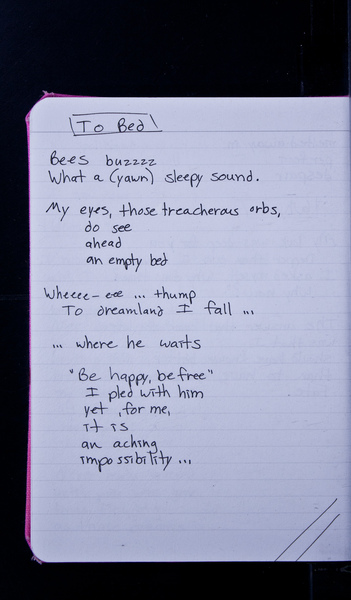 To Bed
Bees buzzzz
What a (yawn) sleepy sound.
My eyes, those treacherous orbs,
do see
ahead
an empty bed
Wheeee-eee ... thump
To dreamland I fall ...
... where he waits
"Be happy, be free"
I pled with him
yet, for me,
it is
an aching
impossibility ...